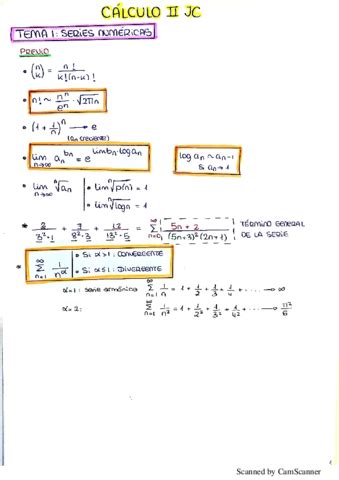 CÁLCULO II JC
TEMA 1: SERIES NUMÉRICAS
PREVIO
• (n k) = n! / k!(n-k)!
• n! ~ nⁿ/eⁿ · √2πn
• (1 + 1/n)ⁿ → e
(an creciente)
• lim n→∞ an^bn = e^(lim bn·log an)
log an ~ an-1
si an→1
• lim n→∞ ⁿ√an | • lim ⁿ√p(n) = 1
• lim ⁿ√log n = 1
* 2/3²·1 + 7/8²·3 + 12/13²·5 = ∞Σn=0 5n+2 / (5n+3)²(2n+1)
TÉRMINO GENERAL
DE LA SERIE
* ∞Σn=1 1/n^α | • Si α>1: CONVERGENTE
• Si α≤1: DIVERGENTE
α=1: serie armónica ∞Σn=1 1/n = 1 + 1/2 + 1/3 + 1/4 + ······ → ∞
α=2: Σn=1 1/n² = 1 + 1/2² + 1/3² + 1/4² + ······ → π²/6
Scanned by CamScanner